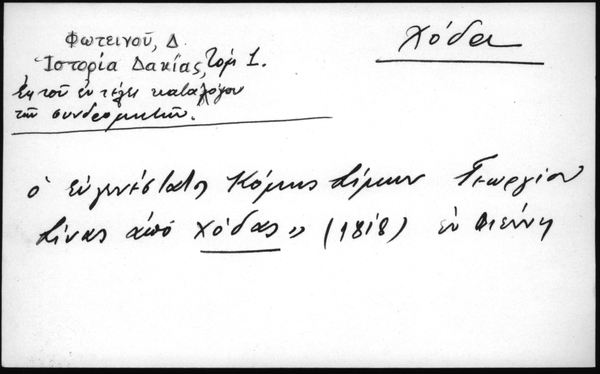 Φωτεινοῦ, Δ.
Χόδα
Ἱστορία Δακίας, τομ 1.
Ἐκ τοῦ ἐν τέλει καταλόγου
τῶν συνδρομητῶν.
ὁ εὐγενέστατος Κόμης Σίμων Γεωργίου
Σίνας ἀπό Χόδας» (1818) ἐν Βιέννῃ